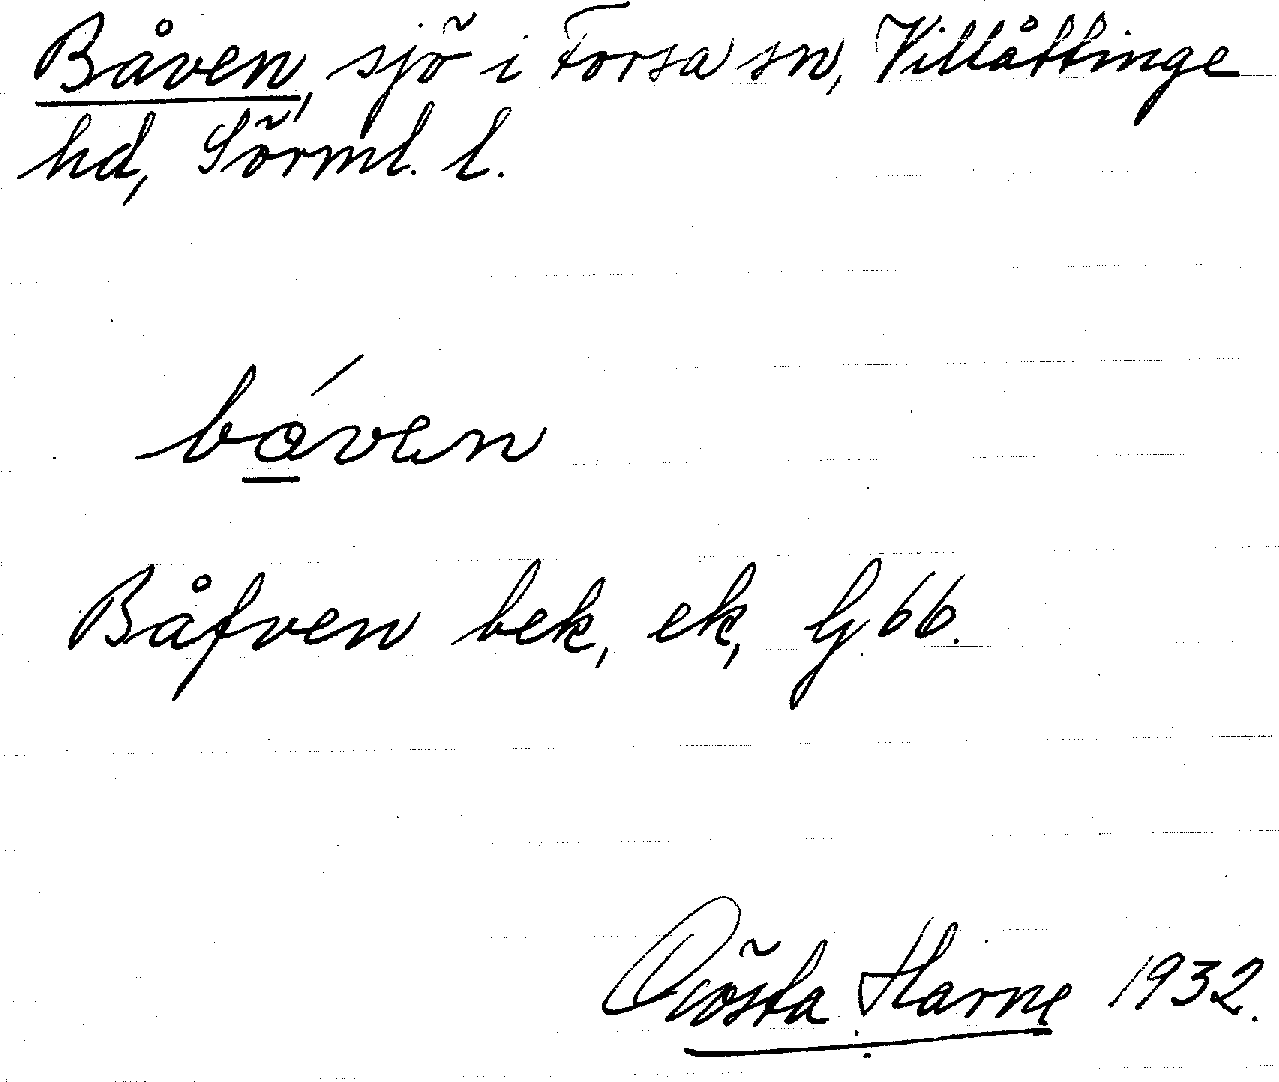 Båven, sjö i Forsa sn, Villåttinge
hd, Sörml. l.
bóven
Båfven bek, ek, G 66.
Gösta Harne 1932.